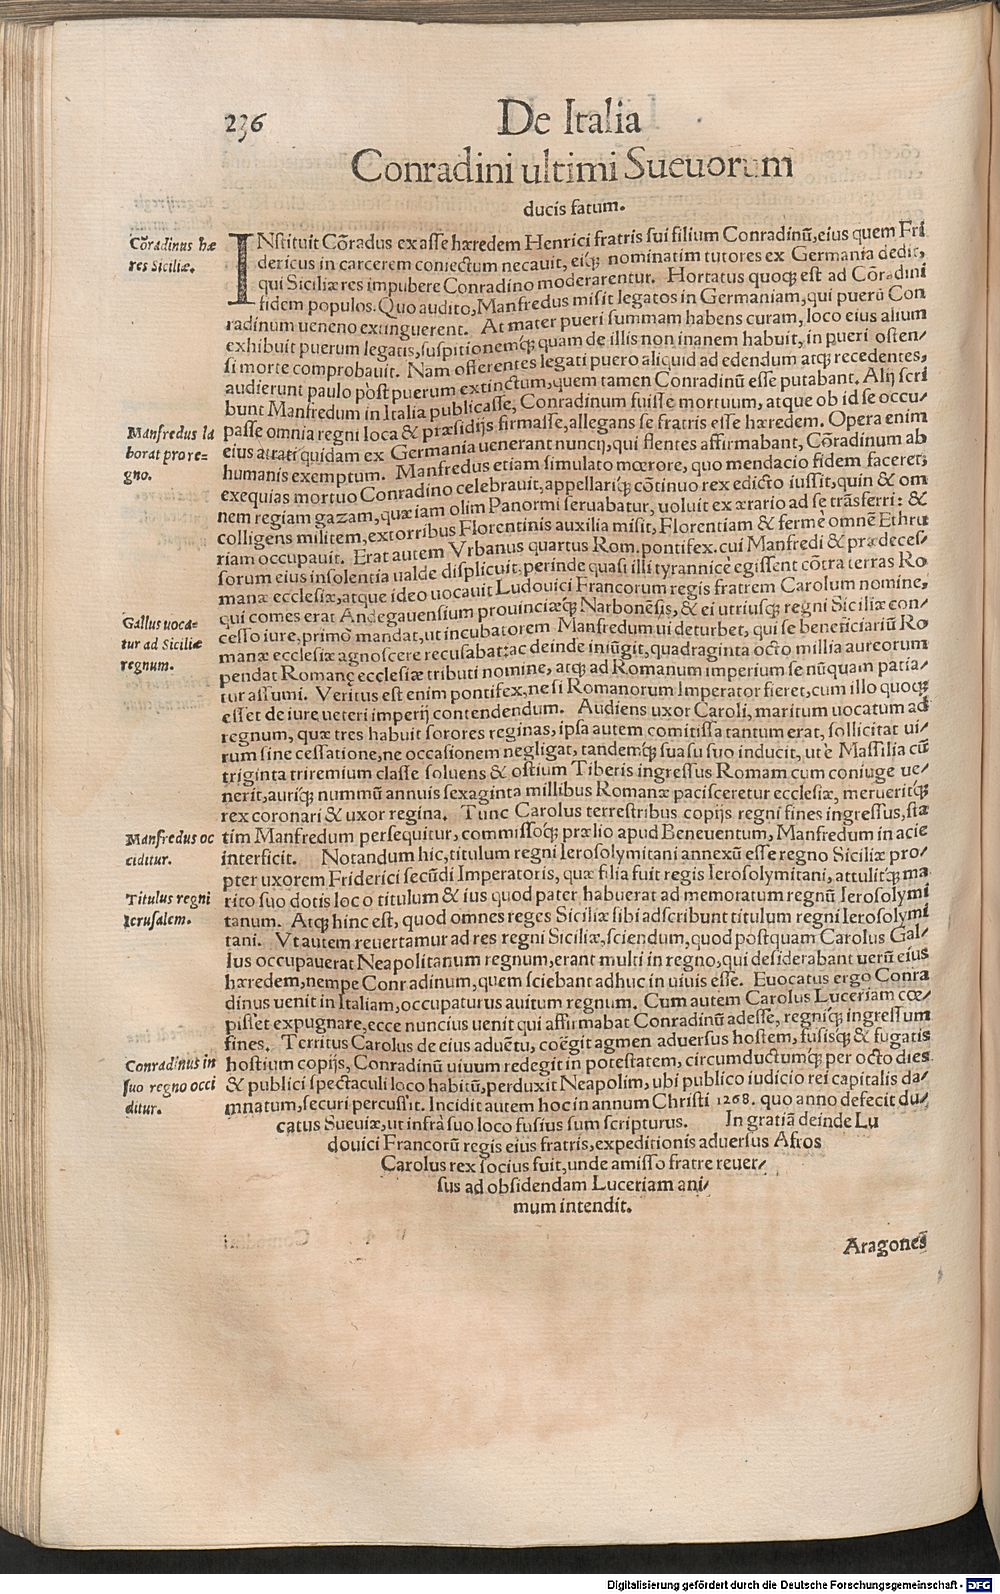 236
De Italia
Conradini ultimi Sueuorum
ducis fatum.
Cõradinus hæ
res Siciliæ.
INstituit Cõradus ex asse hæredem Henrici fratris sui filium Conradinũ, eius quem Fri
dericus in carcerem coniectum necauit, eiq́; nominatim tutores ex Germania dedit,
qui Siciliæ res impubere Conradino moderarentur. Hortatus quoq; est ad Cõradini
fidem populos. Quo audito, Manfredus misit legatos in Germaniam, qui puerũ Con
radinum ueneno extinguerent. At mater pueri summam habens curam, loco eius alium
exhibuit puerum legatis, suspitionemq́; quam de illis non inanem habuit, in pueri osten⸗
si morte comprobauit. Nam offerentes legati puero aliquid ad edendum atq; recedentes,
audierunt paulo pòst puerum extinctum, quem tamen Conradinũ esse putabant. Alij scri
bunt Manfredum in Italia publicasse, Conradinum fuisse mortuum, atque ob id se occu⸗
Manfredus la
borat pro re=
gno.
passe omnia regni loca & præsidijs firmasse, allegans se fratris esse hæredem. Opera enim
eius atrati quidam ex Germania uenerant nuncij, qui flentes affirmabant, Cõradinum ab
humanis exemptum. Manfredus etiam simulato mœrore, quo mendacio fidem faceret,
exequias mortuo Conradino celebrauit, appellariq́; cõtinuo rex edicto iussit, quin & om
nem regiam gazam, quæ iam olim Panormi seruabatur, uoluit ex ærario ad se trãsferri: &
colligens militem, extorribus Florentinis auxilia misit, Florentiam & fermè omnẽ Ethru
riam occupauit. Erat autem Vrbanus quartus Rom. pontifex. cui Manfredi & prædeces⸗
sorum eius insolentia ualde displicuit, perinde quasi illi tyrannicè egissent cõtra terras Ro
manæ ecclesiæ, atque ideo uocauit Ludouici Francorum regis fratrem Carolum nomine,
Gallus uoca=
tur ad Siciliæ
regnum.
qui comes erat Andegauensium prouinciæq́; Narbonẽsis, & ei utriusq; regni Siciliæ con⸗
cesso iure, primò mandat, ut incubatorem Manfredum ui deturbet, qui se beneficiariũ Ro
manæ ecclesiæ agnoscere recusabat: ac deinde iniũgit, quadraginta octo millia aureorum
pendat Romanę ecclesiæ tributi nomine, atq; ad Romanum imperium se nũquam patia⸗
tur assumi. Veritus est enim pontifex, ne si Romanorum Imperator fieret, cum illo quoq;
esset de iure ueteri imperij contendendum. Audiens uxor Caroli, maritum uocatum ad
regnum, quæ tres habuit sorores reginas, ipsa autem comitissa tantum erat, sollicitat ui⸗
rum sine cessatione, ne occasionem negligat, tandemq́; suasu suo inducit, ut è Massilia cũ
triginta triremium classe soluens & ostium Tiberis ingressus Romam cum coniuge ue⸗
nerit, auriq́; nummũ annuis sexaginta millibus Romanæ pacisceretur ecclesiæ, merueritq́;
rex coronari & uxor regina. Tunc Carolus terrestribus copijs regni fines ingressus, sta
Manfredus oc
ciditur.
tim Manfredum persequitur, commissoq́; prælio apud Beneuentum, Manfredum in acie
interficit. Notandum hic, titulum regni Ierosolymitani annexũ esse regno Siciliæ pro⸗
pter uxorem Friderici secũdi Imperatoris, quæ filia fuit regis Ierosolymitani, attulitq́; ma
Titulus regni
Ierusalem.
rito suo dotis loco titulum & ius quod pater habuerat ad memoratum regnũ Ierosolymi
tanum. Atq; hinc est, quod omnes reges Siciliæ sibi adscribunt titulum regni Ierosolymi
tani. Vt autem reuertamur ad res regni Siciliæ, sciendum, quod postquam Carolus Gal⸗
lus occupauerat Neapolitanum regnum, erant multi in regno, qui desiderabant uerũ eius
hæredem, nempe Conradinum, quem sciebant adhuc in uiuis esse. Euocatus ergo Conra
dinus uenit in Italiam, occupaturus auitum regnum. Cum autem Carolus Luceriam cœ⸗
pisset expugnare, ecce nuncius uenit qui affirmabat Conradinũ adesse, regniq́; ingressum
fines. Territus Carolus de eius aduẽtu, coëgit agmen aduersus hostem, fusisq́; & fugatis
Conradinus in
suo regno occi
ditur.
hostium copijs, Conradinũ uiuum redegit in potestatem, circumductumq́; per octo dies
& publici spectaculi loco habitũ, perduxit Neapolim, ubi publico iudicio rei capitalis da⸗
mnatum, securi percussit. Incidit autem hoc in annum Christi 1268. quo anno defecit du⸗
catus Sueuiæ, ut infrà suo loco fusius sum scripturus. In gratiã deinde Lu
douici Francorũ regis eius fratris, expeditionis aduersus Afros
Carolus rex socius fuit, unde amisso fratre reuer⸗
sus ad obsidendam Luceriam ani⸗
mum intendit.
Aragones
Digitalisierung gefördert durch die Deutsche Forschungsgemeinschaft - DFG